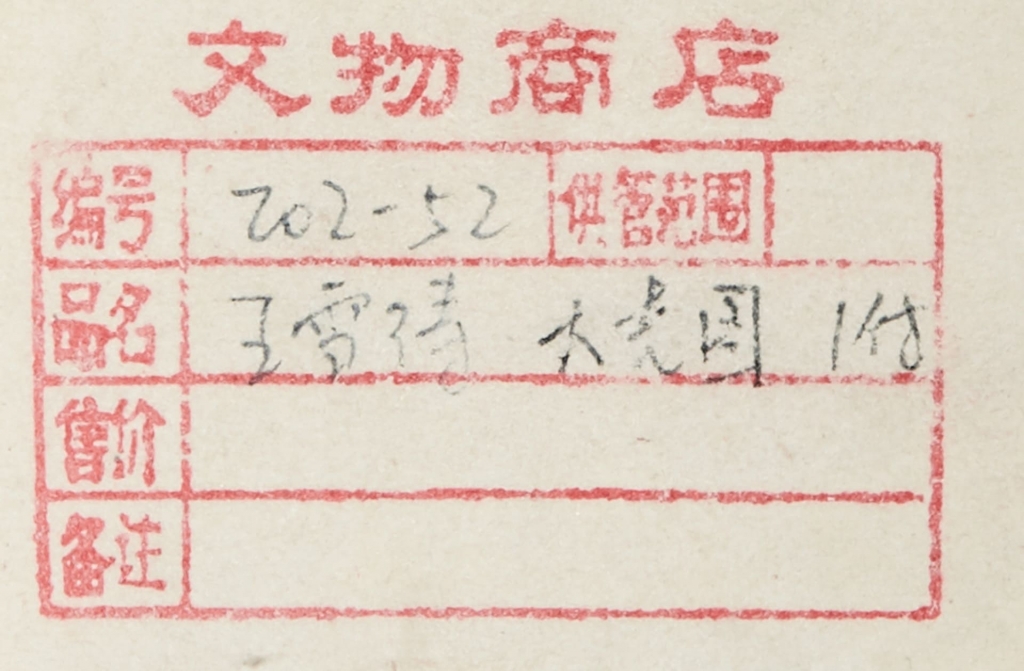 文物商店
编号 202-52 供营范围
品名 王雪涛 图 1付
售价
备注